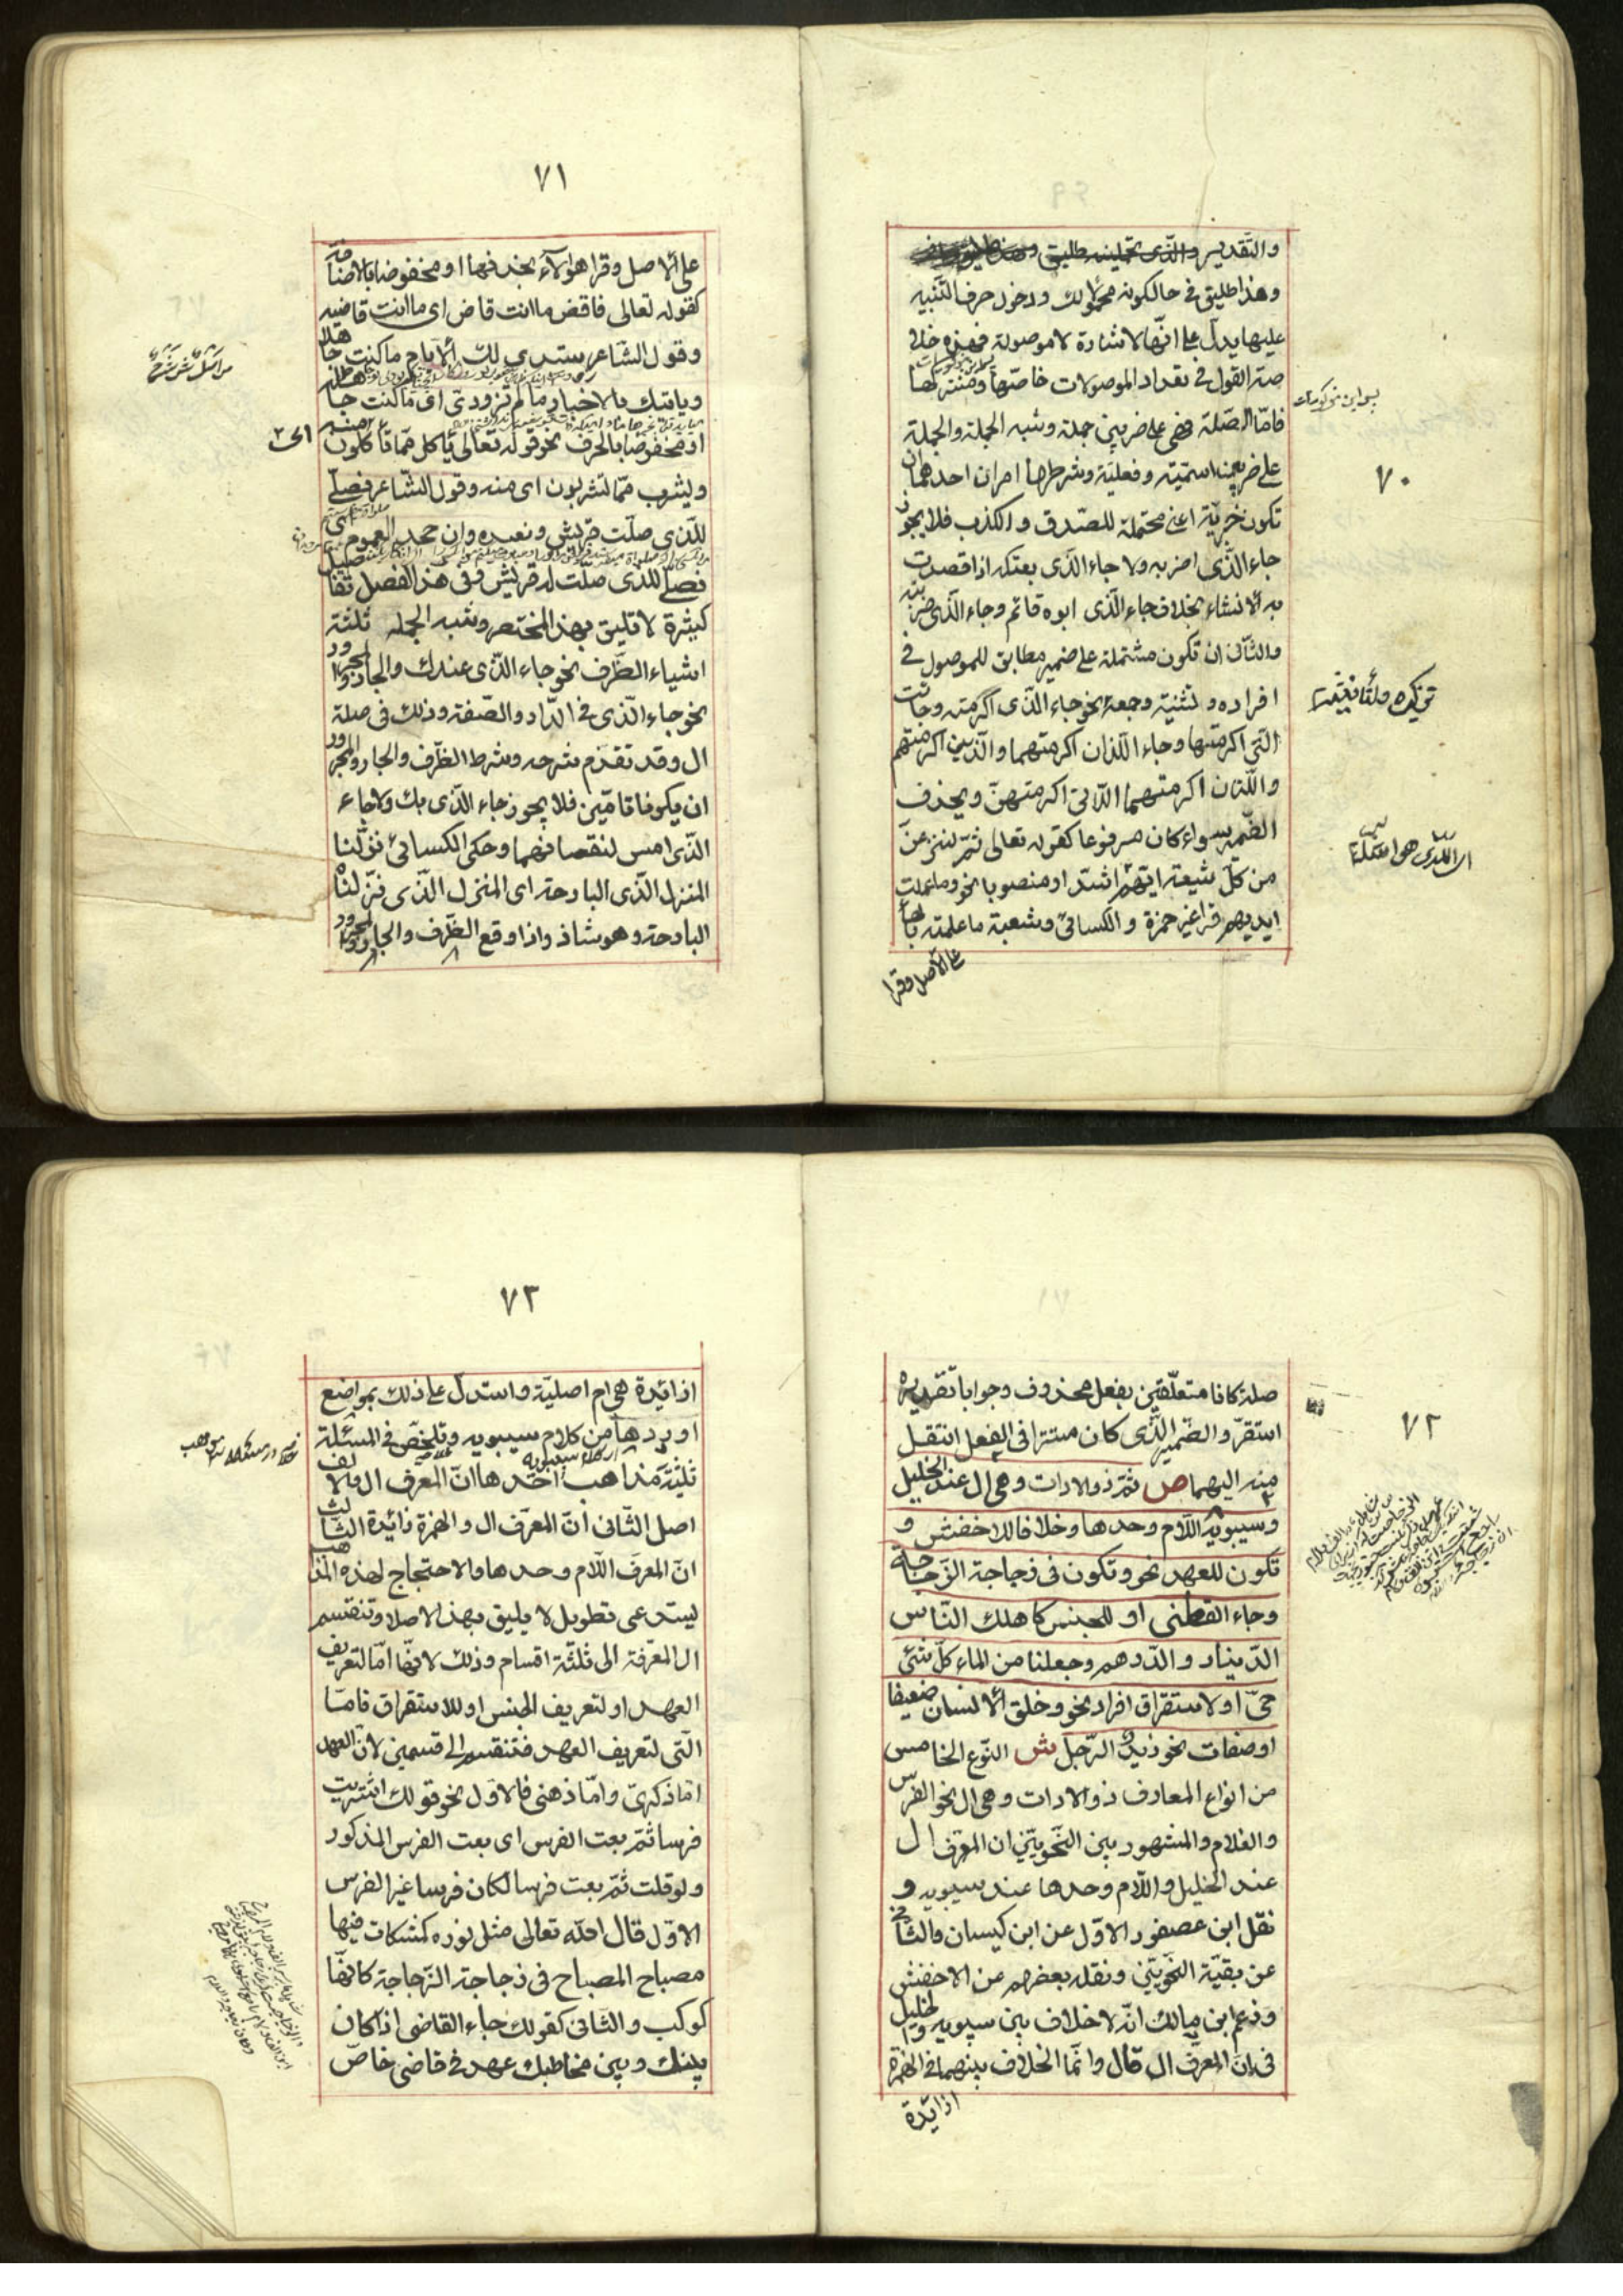 ٧٠
والتقدير والذى تحملينه طليق
وهذا طليق فى حالكونه محمولا لك ودخول حرف التنبيه
عليها يدل على انّها للاشارة لا موصولة فهذه خلا
صة القول فى تعداد الموصولات خاصّها ومشتركها
فامّا الصّلة فهى على ضربين جملة وشبه الجملة والجملة
على ضربين اسميّة وفعليّة وشرطها امران احدهما ان
تكون خبريّة اعنى محتملة للصّدق والكذب فلا يجوز
جاء الّذى اضربه ولا جاء الّذى بعتكه اذا قصدت
به الانشاء بخلاف جاء الّذى ابوه قائم وجاء الّذى ضربته
والثّانى ان تكون مشتملة على ضمير مطابق للموصول فى
افراده وتثنية وجمعه نحو جاء الّذى اكرمته وجائت
الّتى اكرمتها وجاء اللّذان اكرمتهما والّذين اكرمتهم
واللّتان اكرمتهما اللّاتى اكرمتهنّ ويحذف
الضّمير سواء كان مرفوعا كقوله تعالى ثمّ لننزعنّ
من كلّ شيعة ايّهم اشدّ او منصوبا نحو وما عملت
ايديهم قرا غير حمزة والكسائى وشعبة ما عملته بالهاء
على الاصل وقرا
٧١
على الاصل وقرا هؤلآء بحذفها او مخفوضا بالاضافة
كقوله تعالى فاقض ما انت قاض اى ما انت قاضيه
وقول الشّاعر ستبدى لك الايّام ما كنت جاهلا
وياتيك بالاخبار ما لم تزودى اى ما كنت جاهله
او مخفوضا بالحرف نحو قوله تعالى يأكل ممّا تأكلون منه
ويشرب ممّا تشربون اى منه وقول الشّاعر نصلّى
للّذى صلّت قريش ونعبده وان جحد العموم اى
نصلّى للّذى صلّت له قريش وفى هذا الفصل تفاصيل
كثيرة لا تليق بهذا المختصر وشبه الجمله ثلثة
اشياء الظّرف نحو جاء الّذى عندك والجار والمجرور
نحو جاء الّذى فى الدّار والصّفة وذلك فى صلة
ال وقد تقدّم شرحه وشرط الظّرف والجار والمجرور
ان يكونا تامّين فلا يجوز جاء الّذى بك ولا جاء
الّذى امس لنقصانهما وحكى الكسائى نزلنا
المنزل الّذى البارحة اى المنزل الّذى نزلناه
البارحة وهو شاذ واذا وقع الظّرف والجار والمجرور
٧٢
صلة كانا متعلّقين بفعل محذوف وجوبا تقديره
استقرّ والضّمير الّذى كان مستترا فى الفعل انتقل
منه اليهما ص ثمّ ذو الادات وهى ال عند الخليل
وسيبويه اللّام وحدها وخلافا للاخفش و
تكون للعهد نحو وتكون فى زجاجة الزّجاجة
وجاء القاضى او للجنس كاهلك النّاس
الدّينار والدّرهم وجعلنا من الماء كلّ شئ
حىّ او لاستقراق افراد نحو وخلق الانسان ضعيفا
او صفات نحو زيد الرّجل ش النّوع الخامس
من انواع المعارف ذو الادات وهى ال نحو الفرس
والغلام والمشهور بين النّحويّين ان المعرّف ال
عند الخليل واللّام وحدها عند سيبويه و
نقل ابن عصفور الاوّل عن ابن كيسان والثّانى
عن بقيّة النّحويّين ونقله بعضهم عن الاخفش
وزعم ابن مالك انّه لا خلاف بين سيبويه والخليل
فى انّ المعرّف ال قال وانّما الخلاف بينهما فى الهمزة
ازائدة
٧٣
ازائدة هى ام اصليّة واستدلّ على ذلك بمواضع
اوردها من كلام سيبويه وتلخّص فى المسئلة
ثلثة مذاهب احدها انّ المعرف ال والالف
اصل الثّانى انّ المعرّف ال والهمزة زائدة الثّالث
انّ المعرّف اللّام وحدها والاحتجاج لهذه المذاهب
يستدعى تطويل لا يليق بهذا الاملا وتنقسم
ال المعرّفة الى ثلثة اقسام وذلك لانّها امّا لتعريف
العهد او لتعريف الجنس او للاستقراق فامّا
الّتى لتعريف العهد فتنقسم الى قسمين لانّ العهد
امّا ذكرىّ وامّا ذهنى فالاوّل نحو قولك اشتريت
فرسا ثمّ بعت الفرس اى بعت الفرس المذكور
ولو قلت ثمّ بعت فرسا لكان فرسا غير الفرس
الاوّل قال اللّه تعالى مثل نوره كمشكات فيها
مصباح المصباح فى زجاجة الزّجاجة كانّها
كوكب والثّانى كقولك جاء القاضى اذا كان
بينك وبين مخاطبك عهد فى قاضى خاصّ